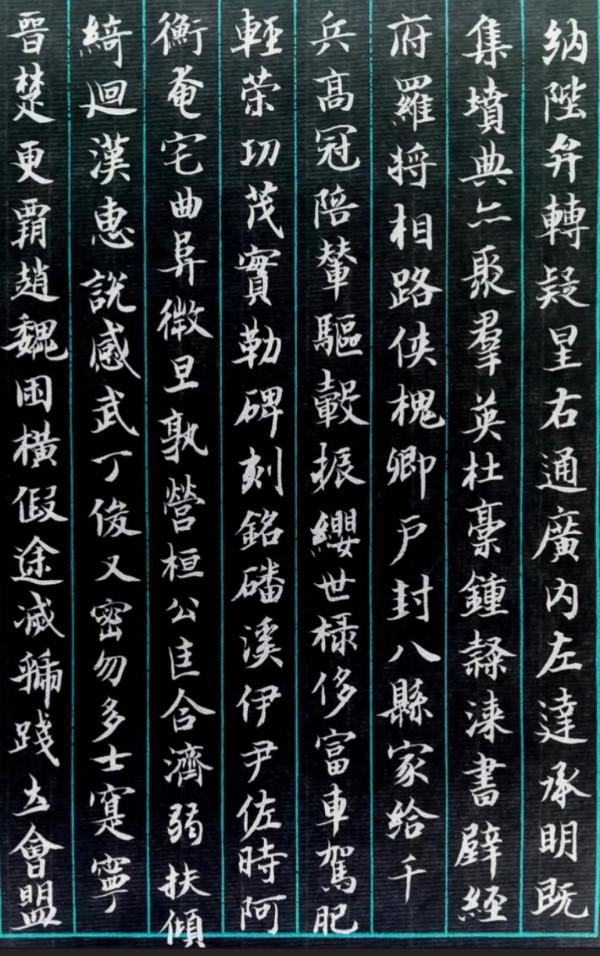 納陛弁轉疑星右通廣內左達承明既
集墳典亦聚羣英杜稾鍾隸漆書壁經
府羅將相路俠槐卿戶封八縣家給千
兵高冠陪輦驅轂振纓世祿侈富車駕肥
輕策功茂實勒碑刻銘磻溪伊尹佐時阿
衡奄宅曲阜微旦孰營桓公匡合濟弱扶傾
綺迴漢惠說感武丁俊乂密勿多士寔寧
晉楚更霸趙魏困橫假途滅虢踐土會盟